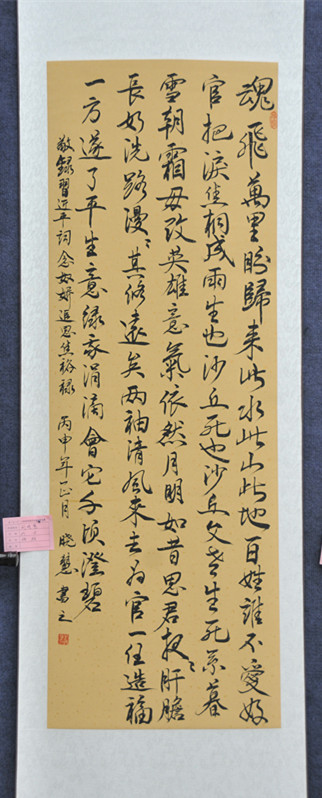 魂飛萬里盼歸来此水此山此地百姓誰不愛好
官把淚焦桐成雨生也沙丘死也沙丘父老生死系暮
雪朝霜毋改英雄意氣依然月明如昔思君夜夜肝膽
長如洗路漫漫其修遠矣两袖清風來去为官一任造福
一方遂了平生意绿我涓滴會它千顷澄碧
敬録習近平詞念奴嬌追思焦裕禄 丙申年正月 晓慧書之